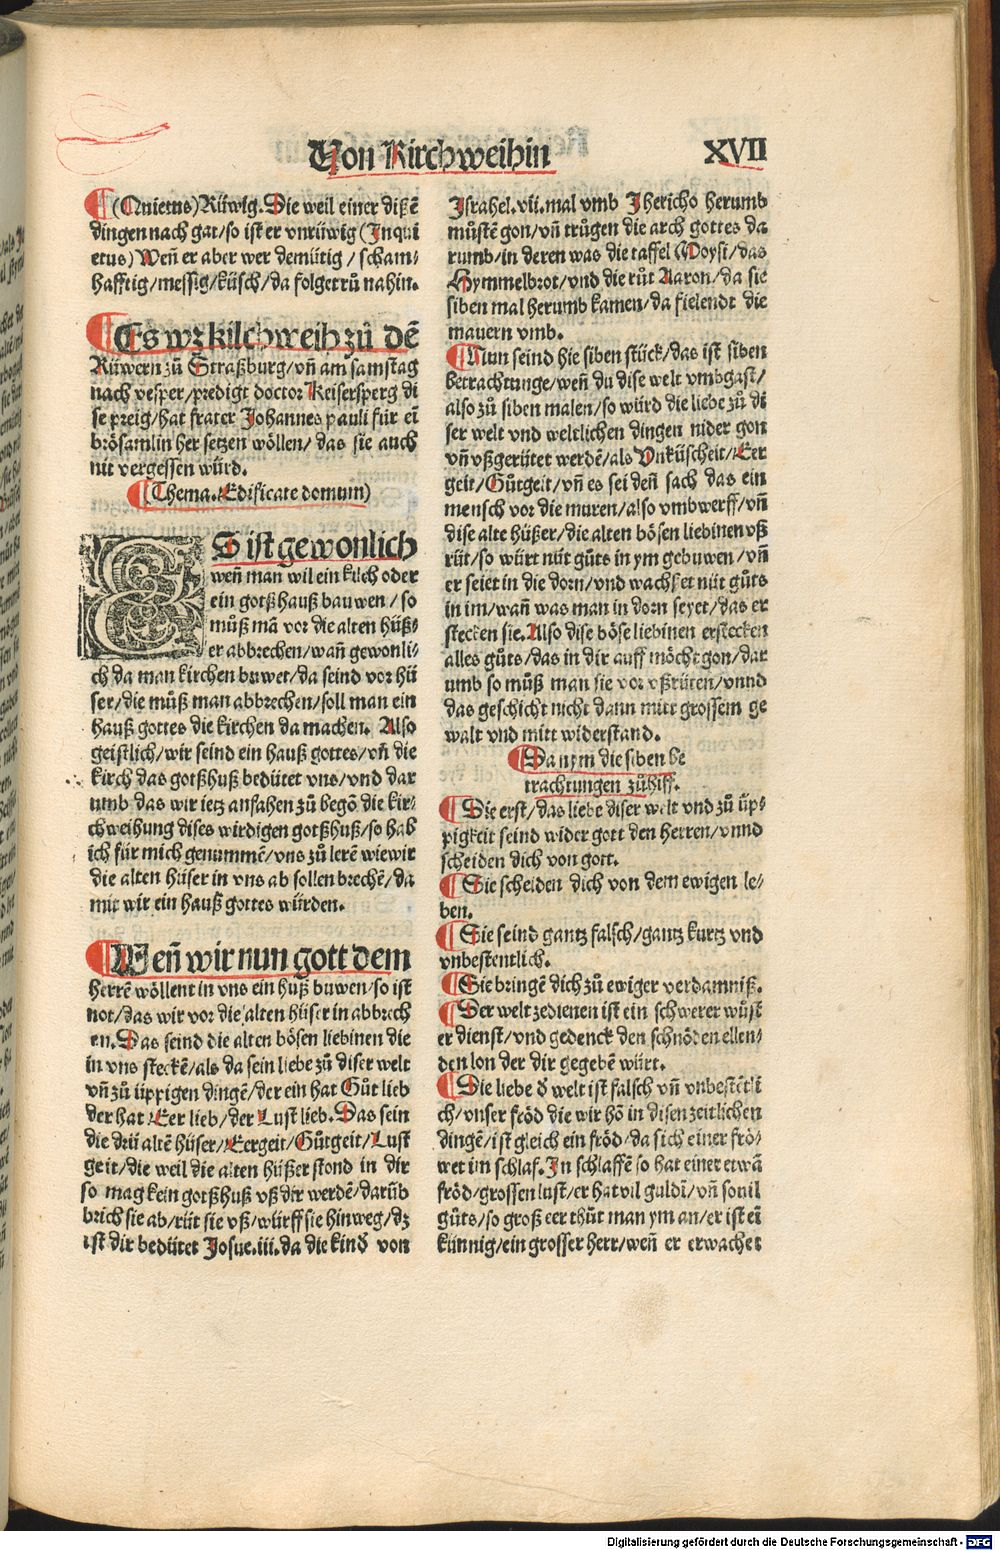 Von Kirchweihin
XVII
(Quietus) Rüwig. Die weil einer disẽ
dingen nach gat/so ist er vnrüwig (Inqui
etus) Weñ er aber wer demütig / scham⸗
hafftig/messig/küsch/da folget rů nahin.
Es wz kilchweih zů dẽ
Rüwern zů Straßburg/vñ am samstag
nach vesper/predigt doctor Keisersperg di
se preig/hat frater Johannes pauli für eĩ
brösamlin her setzen wöllen/das sie auch
nit vergessen würd.
(Thema. Edificate domum)
ES ist gewonlich
weñ man wil ein kilch oder
ein gotßhauß bauwen / so
můß mã vor die alten hüß⸗
er abbrechen/wañ gewonli⸗
ch da man kirchen buwet/da seind vor hü
ser/die můß man abbrechen/soll man ein
hauß gottes die kirchen da machen. Also
geistlich/wir seind ein hauß gottes/vñ die
kirch das gotßhuß bedütet vns/vnd dar
umb das wir ietz anfahen zů begõ die kir⸗
chweihung dises wirdigen gotßhuß/so hab
ich für mich genummẽ/vns zů lerẽ wie wir
die alten hüser in vns ab sollen brechẽ/da
mit wir ein hauß gottes würden.
Weñ wir nun gott dem
herrẽ wöllent in vns ein huß buwen/so ist
not/das wir vor die alten hüser in abbrech
en. Das seind die alten bösen liebinen die
in vns steckẽ/als da sein liebe zů diser welt
vñ zů üppigen dingẽ/der ein hat Gůt lieb
der hat Eer lieb/der Lust lieb. Das sein
die drü altẽ hüser/Eergeit/Gůtgeit/Lust
geit/die weil die alten hüßer stond in dir
so mag kein gotßhuß vß dir werdẽ/darũb
brich sie ab/rüt sie vß/würff sie hinweg/dz
ist dir bedütet Josue.iii.da die kind von
Israhel.vii.mal vmb Jhericho herumb
můstẽ gon/vñ trůgen die arch gottes da
rumb/in deren was die taffel Moysi/das
Hymmelbrot/vnd die růt Aaron/da sie
siben mal herumb kamen/da fielendt die
mauern vmb.
Nun seind hie siben stück/das ist siben
betrachtunge/weñ du dise welt vmbgast/
also zů siben malen/so würd die liebe zů di
ser welt vnd weltlichen dingen nider gon
vñ vßgerütet werdẽ/als Vnküscheit/Eer
geit/Gůtgeit/vñ es sei deñ sach das ein
mensch vor die muren/also vmbwerff/vñ
dise alte hüßer/die alten bösen liebinen vß
rüt/so würt nüt gůts in ym gebuwen/vñ
er seiet in die dorn/vnd wachßet nüt gůts
in im/wañ was man in dorn seyet/das er
stecken sie. Also dise böse liebinen erstecken
alles gůts/das in dir auff möcht gon/dar
umb so můß man sie vor vßrüten/vnnd
das geschicht nicht dann mitt grossem ge
walt vnd mitt widerstand.
Da nym die siben be
trachtungen zů hilff.
Die erst/das liebe diser welt vnd zů üp⸗
pigkeit seind wider gott den herren/vnnd
scheiden dich von gott.
Sie scheiden dich von dem ewigen le⸗
ben.
Sie seind gantz falsch/gantz kurtz vnd
vnbestentlich.
Sie bringẽ dich zů ewiger verdamniß.
Der welt zedienen ist ein schwerer wůst
er dienst/vnd gedenck den schnöden ellen⸗
den lon der dir gegebẽ würt.
Die liebe d̓ welt ist falsch vñ vnbestẽtli
ch/vnser fröd die wir hõ in disen zeitlichen
dingẽ/ist gleich ein fröd/da sich einer frö⸗
wet im schlaf. In schlaffẽ so hat einer etwã
fröd/grossen lust/er hat vil guldĩ/vñ so vil
gůts/so groß eer thůt man ym an/er ist eĩ
künnig/ein grosser herr/weñ er erwachet
Digitalisierung gefördert durch die Deutsche Forschungsgemeinschaft - DFG